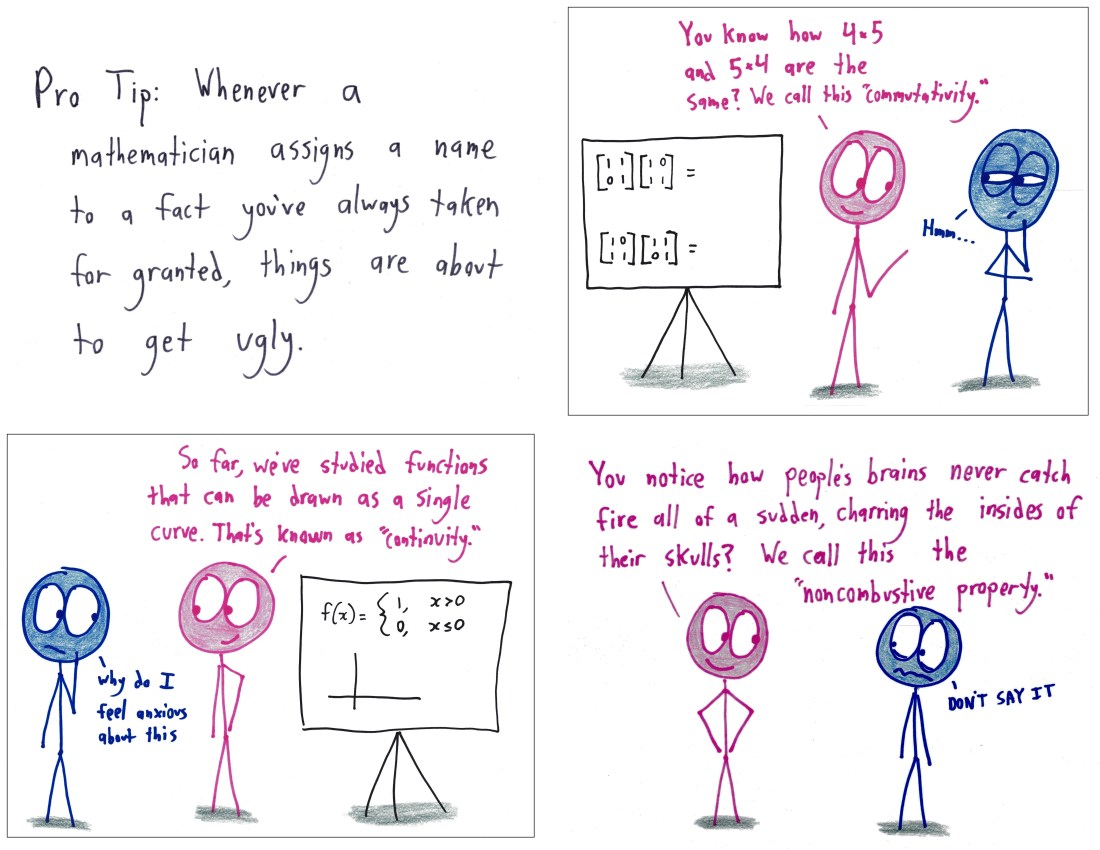 Pro Tip: Whenever a
mathematician assigns a name
to a fact you've always taken
for granted, things are about
to get ugly.
You know how 4×5
and 5×4 are the
same? We call this "commutativity."
[1 1
0 1] [1 0
1 1] =
[1 0
1 1] [1 1
0 1] =
Hmm...
So far, we've studied functions
that can be drawn as a single
curve. That's known as "continuity."
why do I
feel anxious
about this
f(x) = { 1, x>0
0, x≤0
You notice how people's brains never catch
fire all of a sudden, charring the insides of
their skulls? We call this the
"noncombustive property."
DON'T SAY IT